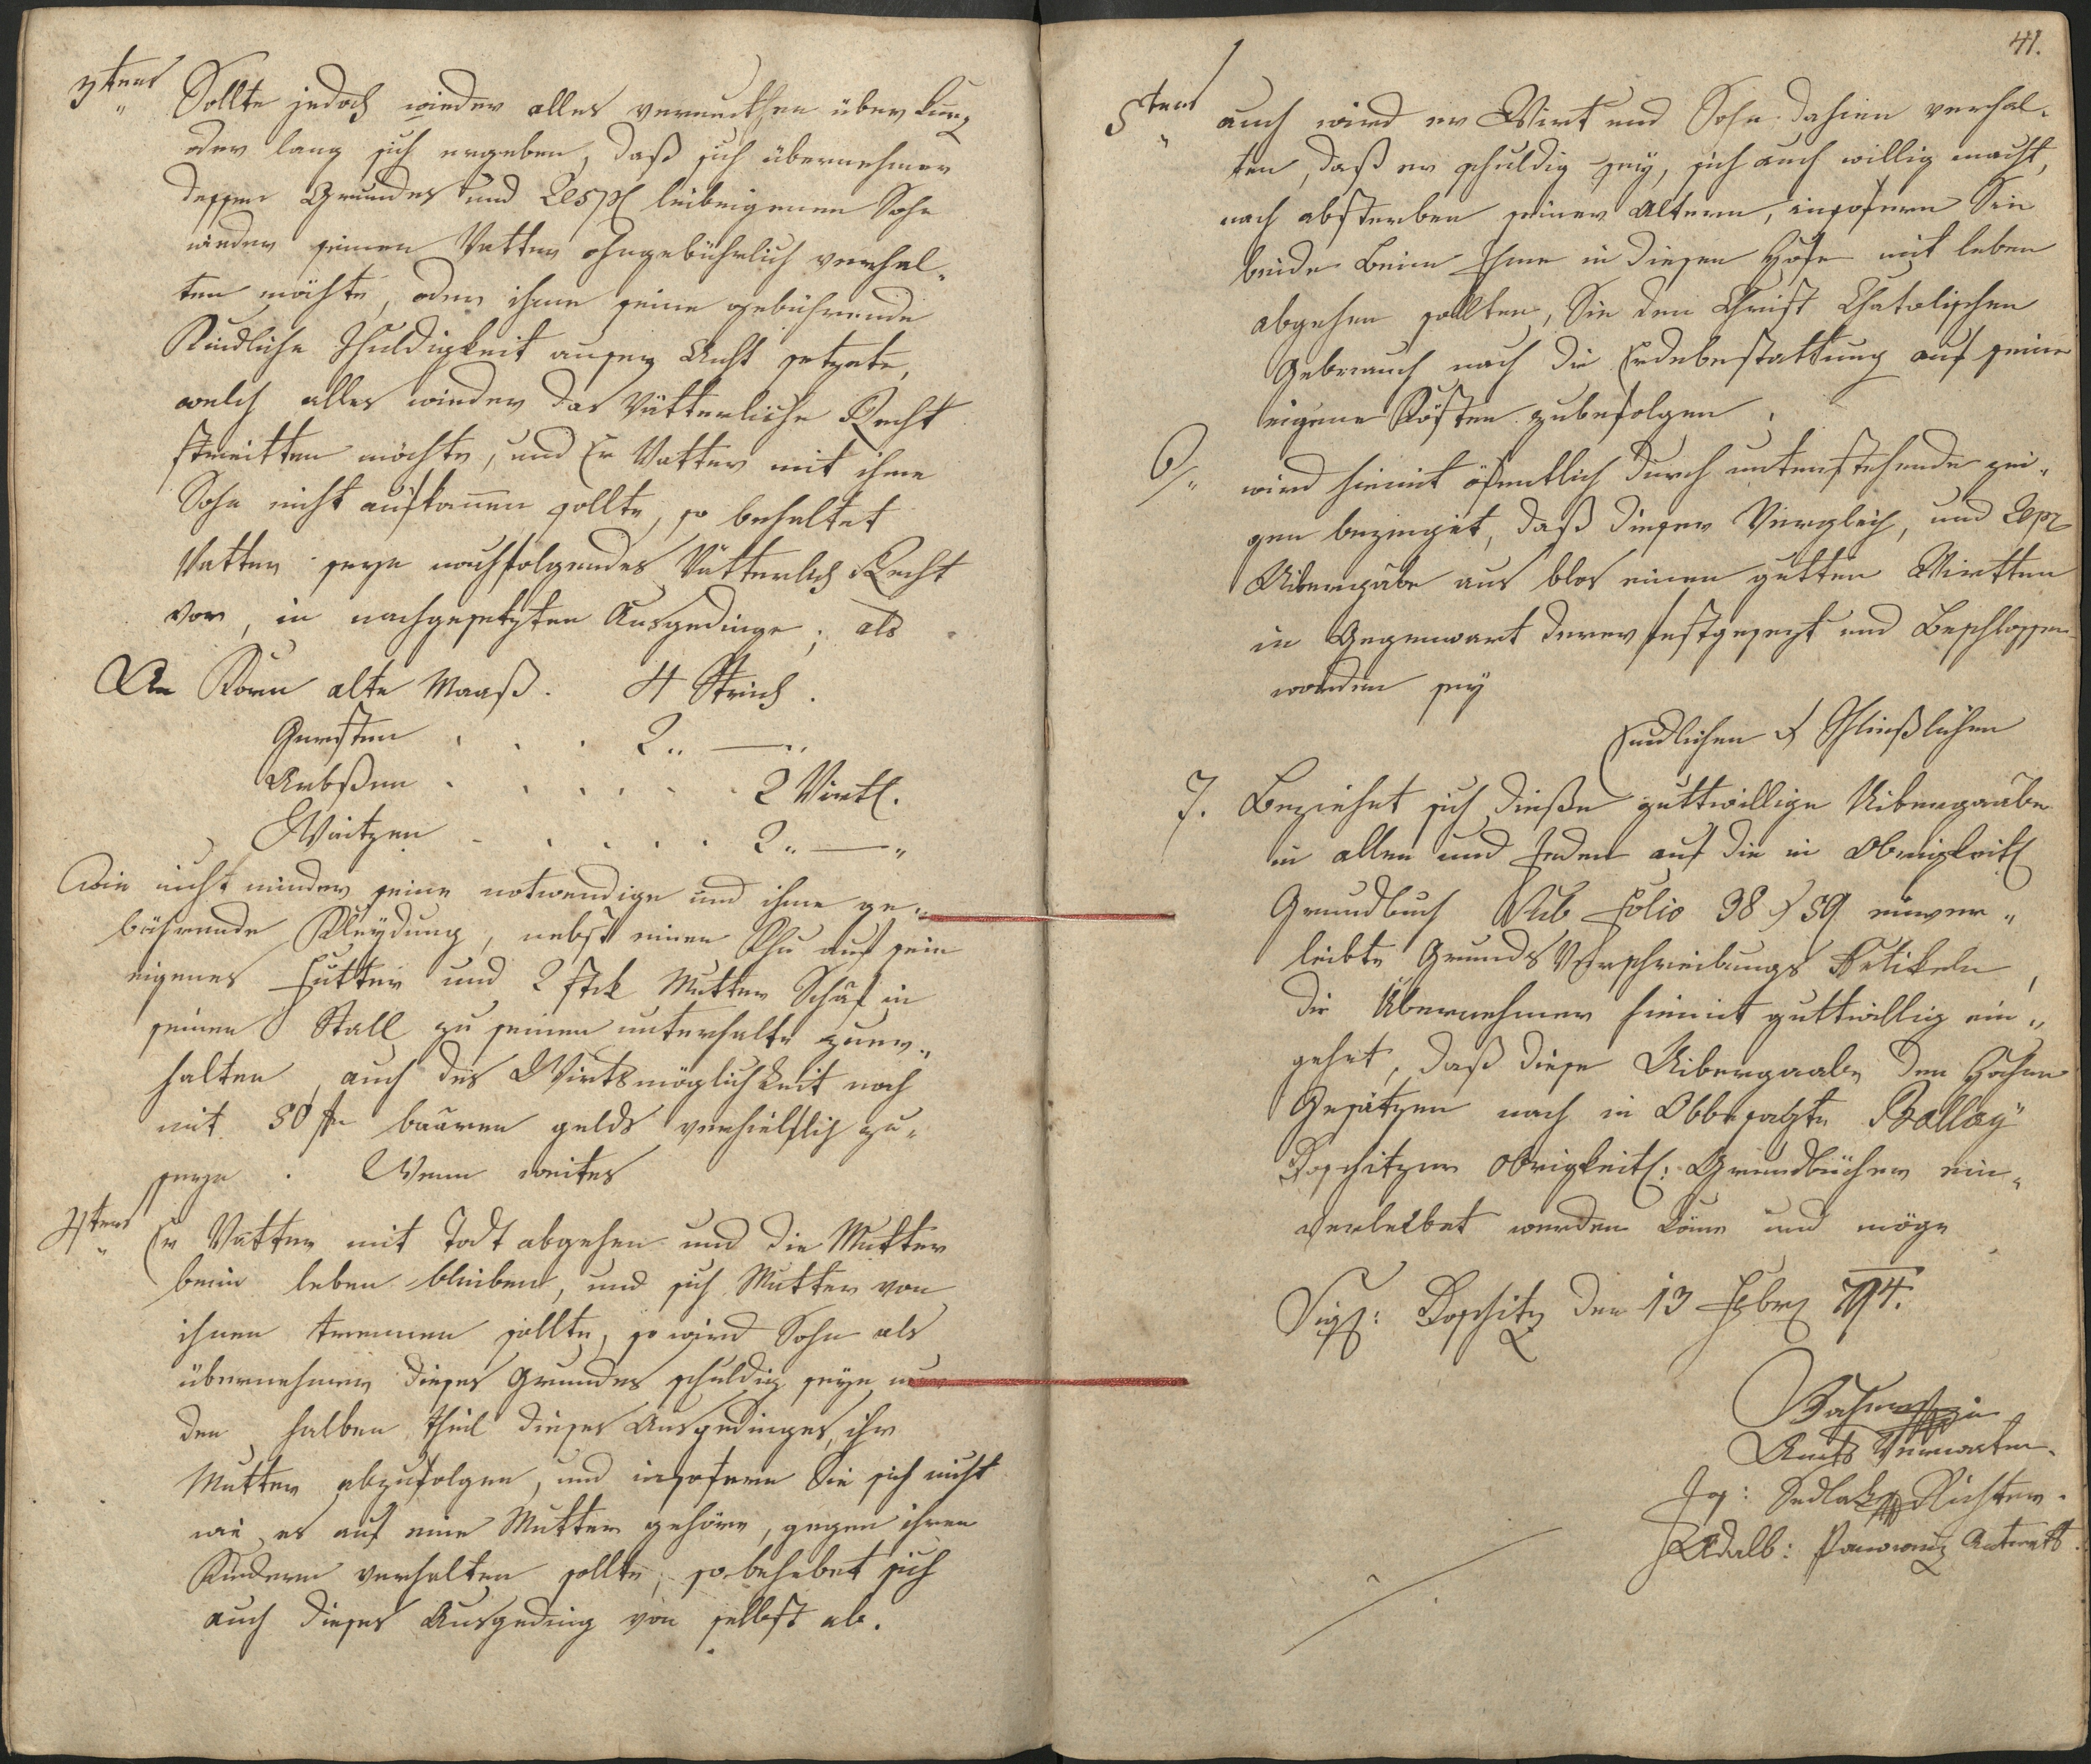 3tens Sollte jedoch wieder alles vermuthen über kurz
oder lang sich ergeben, daß sich übernehmer
dessen Grundes und leibeigenen Sohn
wieder seinen Vatter ohngebührlich verhal„
ten möchte, oder ihme seine gebührende
Kindliche Schuldigkeit auser Acht setzete,
welch alles wieder das Vätterliche Recht
streitten möchte, und Er Vatter mit ihme
Sohn nicht auskommen sollte, so behaltet
Vatter seyn nachfolgendes Vätterlich Recht
vor, in nachgesetzten Ausgedinge; als
An Korn alte Maaß. 4 Strich.
Gersten . . . 2 „ — „
Arbßen . . . . . . 2 Virtl.
Waitzen . . . . . 2 „ — „
Wie nicht minder seine notwendige und ihme ge„
bührende Kleydung, nebst einer Khu auf sein
eigenes Futter und 2 stk Mutter Schaf in
seinen Stall zu seinen unterhalte zuer„
halten, auch des Wirtsmöglichkeit nach
mit 50 fr baaren gelds verhielflich zu„
seyn. Wenn weites
4tens Er Vatter mit Todt abgehen und die Mutter
beim leben bleiben, und sich Mutter von
ihnen trennen sollte, so wird Sohn als
übernehmer dieses Grundes schuldig seyn nur
den halben theil dieses Ausgedinges, ihr
Mutter abzufolgen, und insofern Sie sich nicht
wie es auf eine Mutter gehöre, gegen ihren
Kindern verhalten sollte, so behebet sich
auch dieses Ausgeding von selbst ab.
41.
5tens auch wird er Wirt und Sohn dahin verhal„
ten, daß er schuldig sey, sich auch willig macht,
nach absterben seiner Altern, insofern Sie
beide beim Ihme in diesen Hofe mit leben
abgehen sollten, Sie den Christ Chatolischen
Gebrauch nach die Erdebestattung auf seine
eigene Kösten zubefolgen.
6/„ wird hiemit öfentlich durch untenstehende zei„
gen bezeuget, daß dieser Vergleich, und
Uibergabe aus blos einen gutten Wirtten
in Gegenwart derer festgesezt und Beschlossen
worden sey
Endlichen & Schließlichen
7. Beziehet sich dieße guttwillige Uibergaabe
in allen und Jeden auf die in Obrigkeitl
Grundbuch Sub Folio 38 & 39 einver„
leibte Grunds Verschreibungs Artikeln,
die Übernehmer hiemit guttwillig ein„
gehet, daß diese Uibergaabe den Hohen
Gesätzen nach in Obbesagte
Doschitzer obrigkeitl: Grundbücher ein„
verleibet werden köne und möge
Sigl: Doschitz den 13 Febr 794.
Amts Verwarter.
Jos: Sedlak Richter.
Adalb: